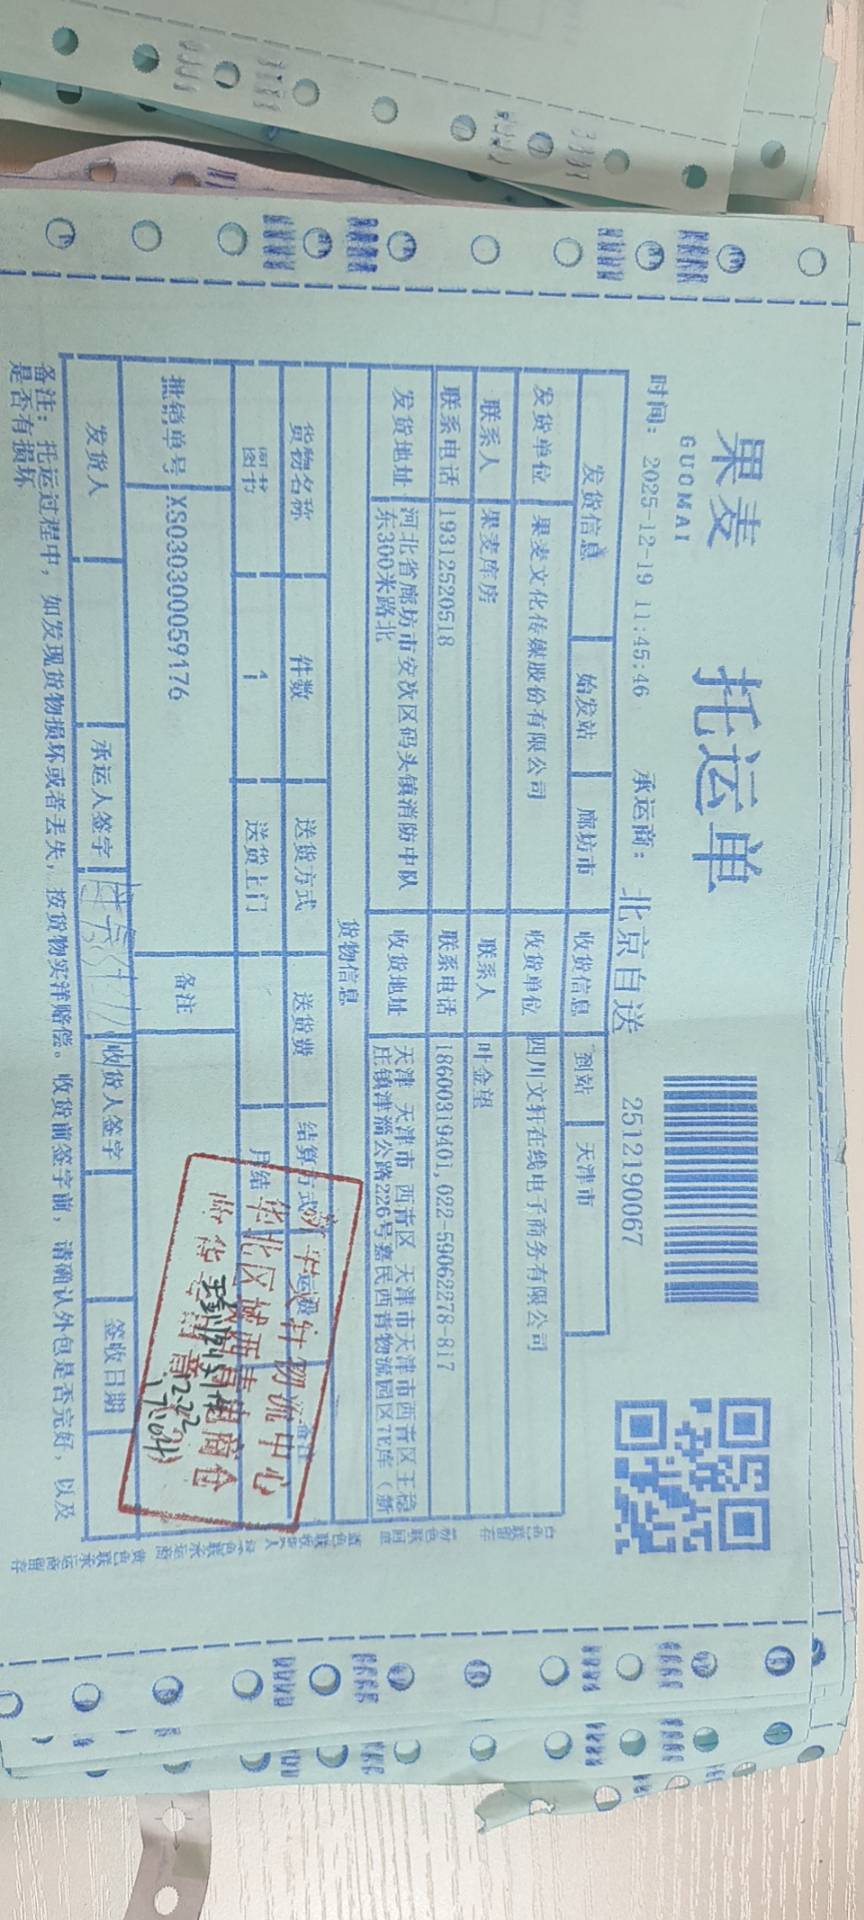 果麦
GUOMAI
托运单
时间: 2025-12-19 11:45:46 承运商: 北京自送 2512190067
发货信息 始发站 廊坊市 收货信息 到站 天津市
发货单位 果麦文化传媒股份有限公司 收货单位 四川文轩在线电子商务有限公司
联系人 果麦库房 联系人 叶金望
联系电话 19312520518 联系电话 18600319401,022-59062278-817
发货地址 河北省廊坊市安次区码头镇消防中队东300米路北 收货地址 天津 天津市 西青区 天津市天津市西青区王稳庄镇津淄公路226号嘉民西青物流园区7E库（新
货物信息
货物名称 件数 送货方式 送货费 结算方式 备注
图书 1 送货上门 月结
批销单号 XS030300059176 备注
发货人 承运人签字 收货人签字 签收日期
备注: 托运过程中, 如发现货物损坏或者丢失, 按货物实洋赔偿。收货前签字前, 请确认外包是否完好, 以及
是否有损坏
物流中心
华北区域西青电商仓
收货
12.22